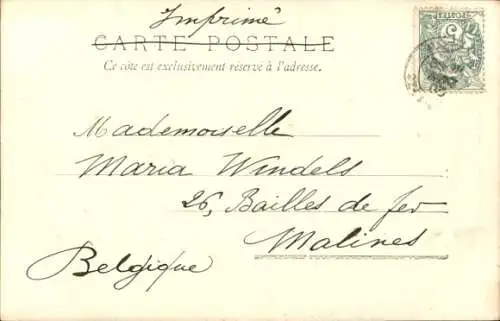 Imprimé
CARTE POSTALE
Ce côté est exclusivement réservé à l'adresse.
POSTES
5
Mademoiselle
Maria Windels
26, Bailles de fer
Malines
Belgique